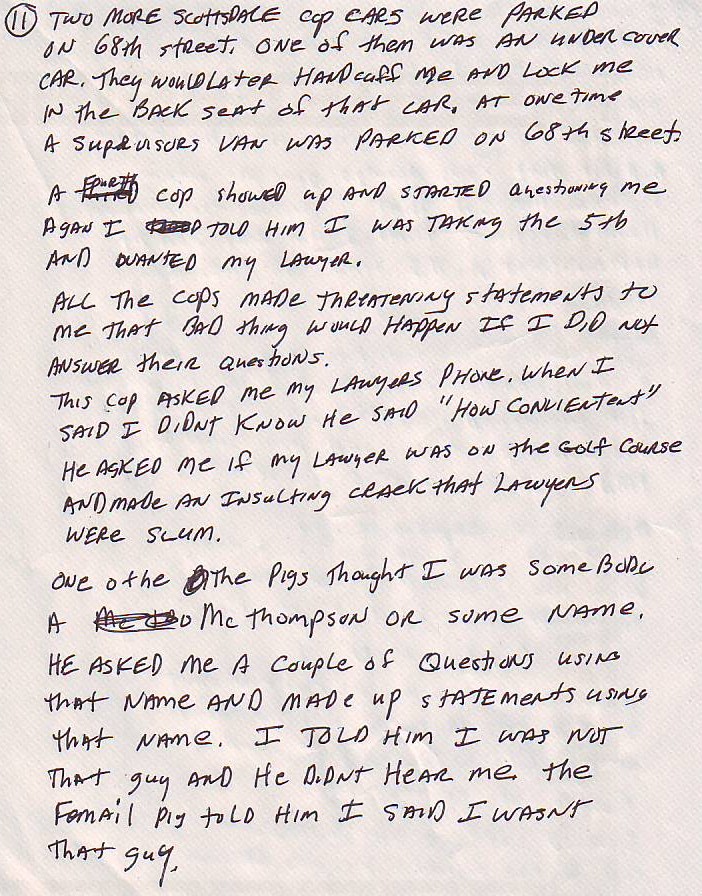 11 TWO MORE SCOTTSDALE COP CARS WERE PARKED
ON 68th STREET. ONE OF them WAS AN UNDERCOVER
CAR. They WOULD LATER HANDCUFF Me AND LOCK me
IN the BACK SEAT OF THAT CAR. AT ONE TIME
A SUPRVISORS VAN WAS PARKED ON 68th street.
A FOURTH COP showED up AND STARTED questioning me
AGAN I TOLD HIM I WAS TAKING the 5th
AND WANTED my LAWYER.
ALL THE COPS MADE THREATENING STATEMENTS TO
me THAT BAD thing WOULD HAPPEN IF I DID NOT
ANSWER their Questions.
THIS COP ASKED me my LAWYERS PHONE. WHEN I
SAID I DIDNT KNOW He SAID "HOW CONVIENTENT"
He ASKED me IF my LAWYER WAS ON the GOLF COURSE
AND MADE AN INSULTING CRACK THAT LAWYERS
WERE SLUM.
ONE o the The PIGS Thought I WAS SOMEBODY
A Mc Thompson OR some NAME.
HE ASKED me A couple of Questions USING
that NAME AND MADE up STATEMENTS USING
that NAME. I TOLD Him I WAS NOT
THAT guy AND He DIDNT HEAR me. the
Femail Pig told Him I SAID I WASNT
THAT guy.